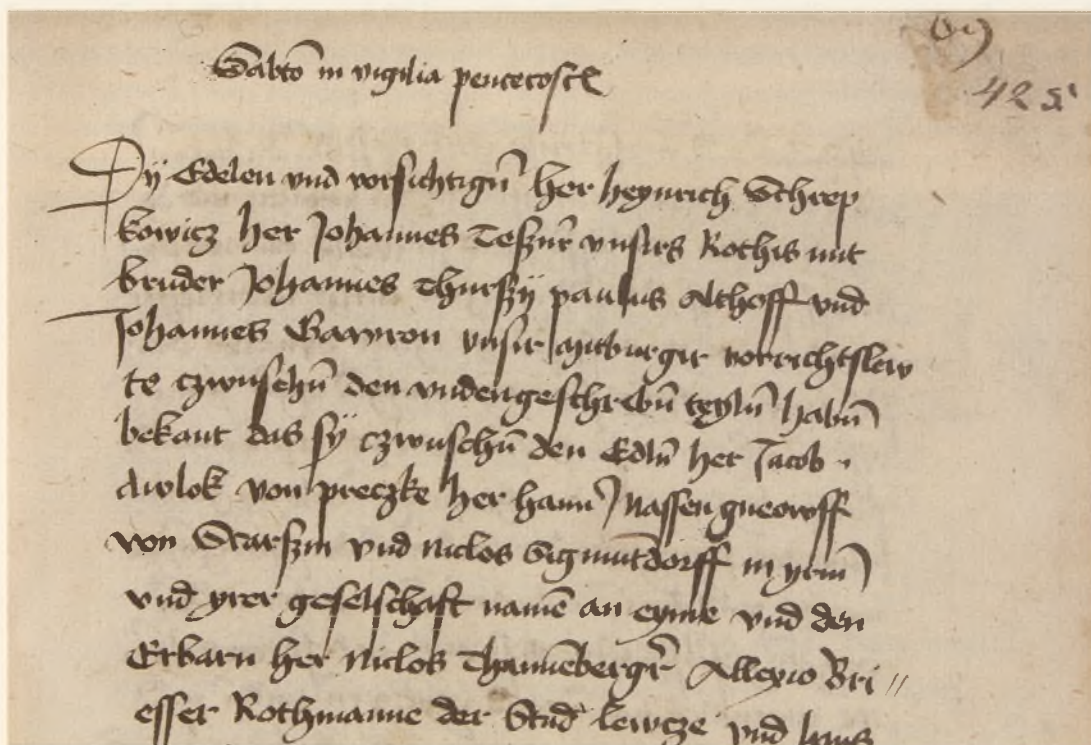 69
42 a
Sabto in vigilia pentecost
Dy Edelen vnd vorsichtign her heynrich Schrep
kowicz her Johannes Teszner vnsirs Rothis mit
bruder Johannes Thurszy paulus Althoff vnd
Johannes Gawron vnsir mitburger vorrichtslew
te czwuschn den vndengeschrebn teyln habn
bekant das sy czwuschn den Edln her Jacob
Awlok von preczke her hann Nassengneorff
von Scarszin vnd niclos Sigmutdorff in yrm
vnd yrer geselschaft namen an eyme vnd den
Erbarn her Niclos Thannebergr Allexio Bri
esser Rothmanne der Stad lewcze vnd hans